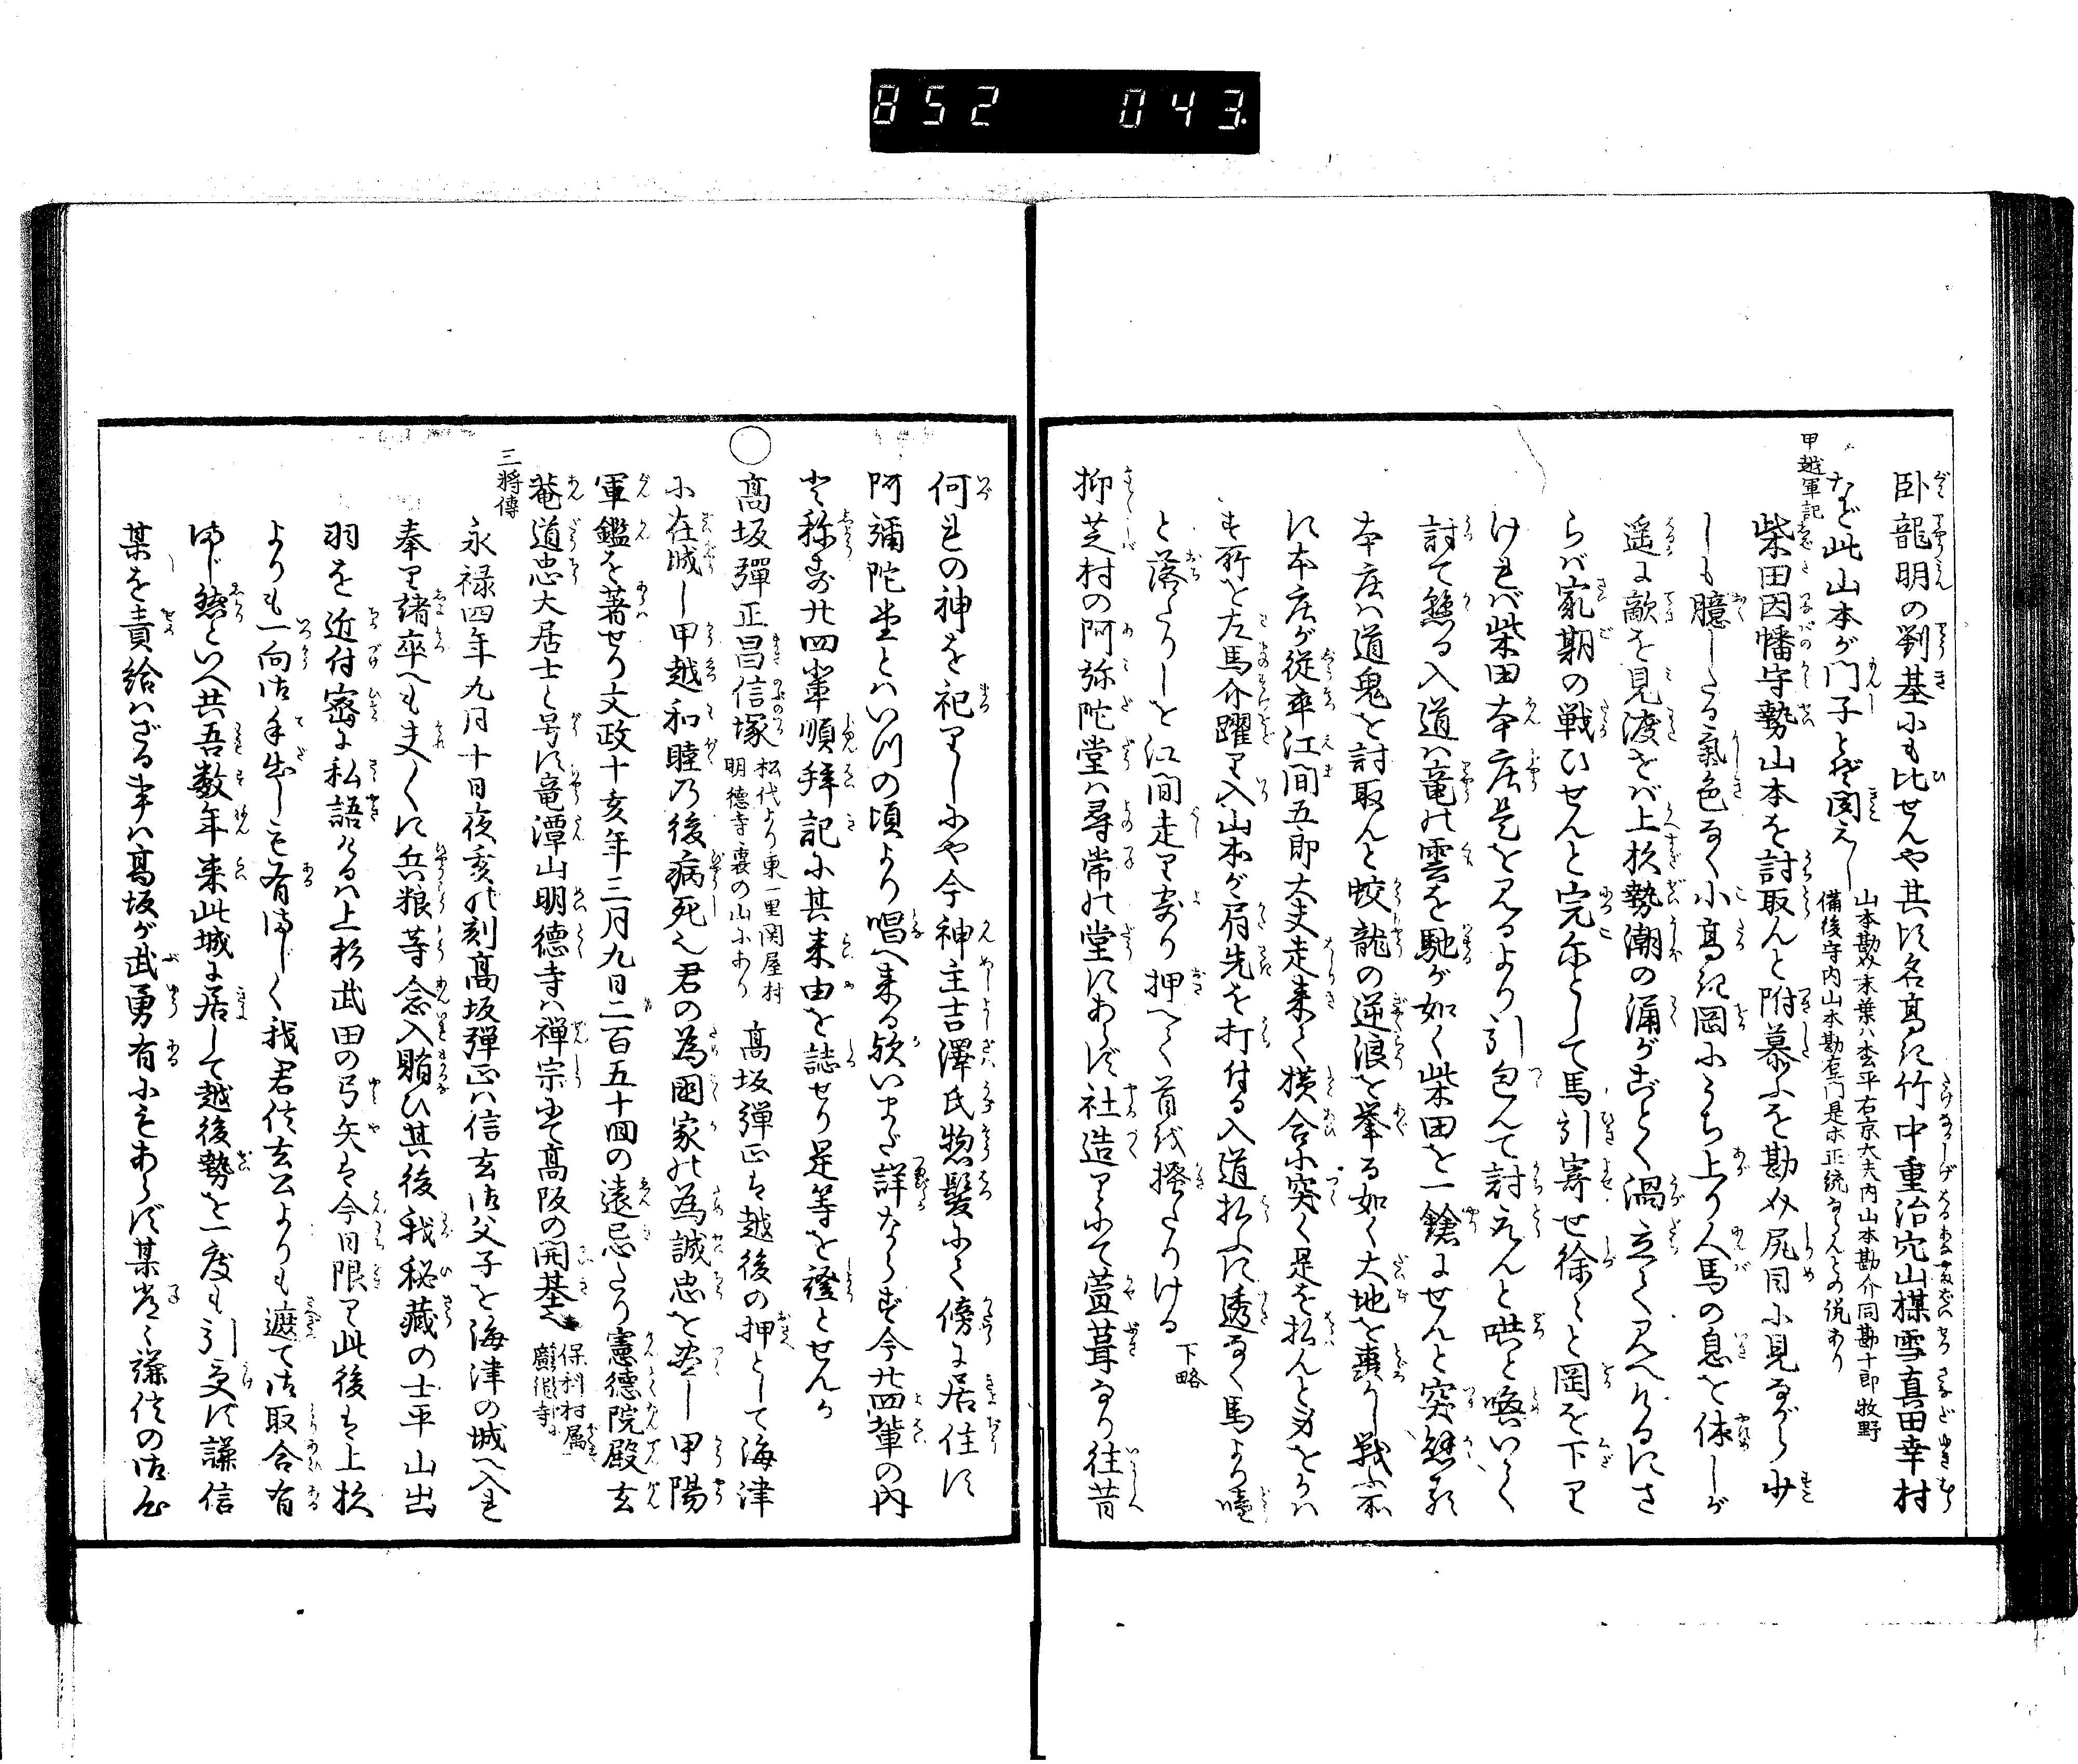 852 043
臥龍明の劉基にも比せんや其に名高き竹中重治穴山楳雪真田幸村
など此山本が門子とぞ聞えし
山本勘介末葉ハ松平右京大夫内山本勘介同勘十郎牧野
備後守内山本勘右エ門是ホ正統ならんとの説あり
甲越軍記
柴田因幡守勢山本を討取んと附慕ふを勘介尻目に見ながら少
しも臆したる氣色なく小高き岡にうち上り人馬の息を休しが
遥に敵を見渡せば上杦勢潮の涌がごとく渦立て見へけるにさ
らば最期の戦ひせんと完尓として馬引寄せ徐々と岡を下り
ければ柴田本庄是を見るより引包んで討とらんと哄と喚いて
討て懸る入道ハ竜の雲を馳が如く柴田を一鎗にせんと突懸る
本庄ハ道鬼を討取んと蛟龍の逆浪を挙る如く大地を轟かし戦ふ所
に本庄が従卒江間五郎大夫走来て横合に突く是を払んと身をかハ
す所を左馬介躍り入山本が肩先を打付る入道払ふに透なく馬より噇
と落たりしを江間走り寄り押へて首を掻たりける
下略
抑芝村の阿弥陀堂ハ尋常の堂にあらず社造りにて萱葺なり往昔
何れの神を祀りしにや今神主吉澤氏惣髪にて傍に居住に
阿彌陀堂とハいつの頃より唱へ来る欤いまだ詳ならず今廿四輩の内
と称す廿四輩順拜記に其来由を誌せり是等を證とせんか
○
高坂彈正昌信塚
松代より東一里関屋村
明德寺裏の山にあり
高坂彈正は越後の押として海津
に在城し甲越和睦乃後病死也君の為國家の為誠忠を尽し甲陽
軍鑑を著せり文政十亥年三月九日二百五十回の遠忌たり憲德院殿玄
菴道忠大居士と号に竜潭山明德寺ハ禅宗にて高阪の開基也
保科村属
廣德寺に
三將傳
永禄四年九月十日夜亥の刻高坂弾正ハ信玄御父子を海津の城へ入れ
奉り諸卒へも夫々に兵粮等念入賄ひ其後我秘蔵の士平山出
羽を近付密に私語けるハ上杉武田の弓矢は今日限り此後は上杦
よりも一向御手出しも有まじく我君信玄公よりも遮て御取合有
まじ然といへ共吾数年来此城に居して越後勢を一度も引受ず謙信
某を責給ハざる事ハ高坂が武勇有にもあらず某常々謙信の御